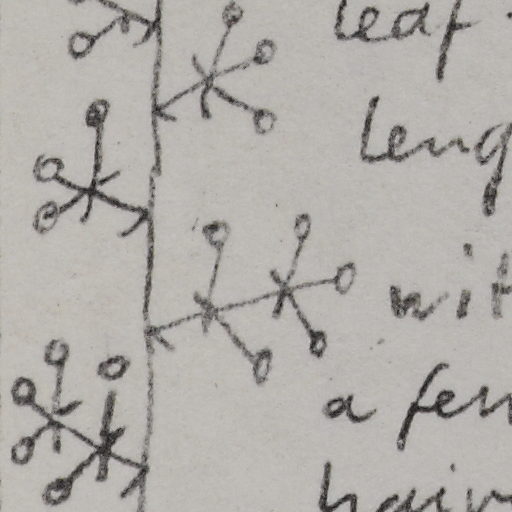 leaf.
leng
wit
a few
hair